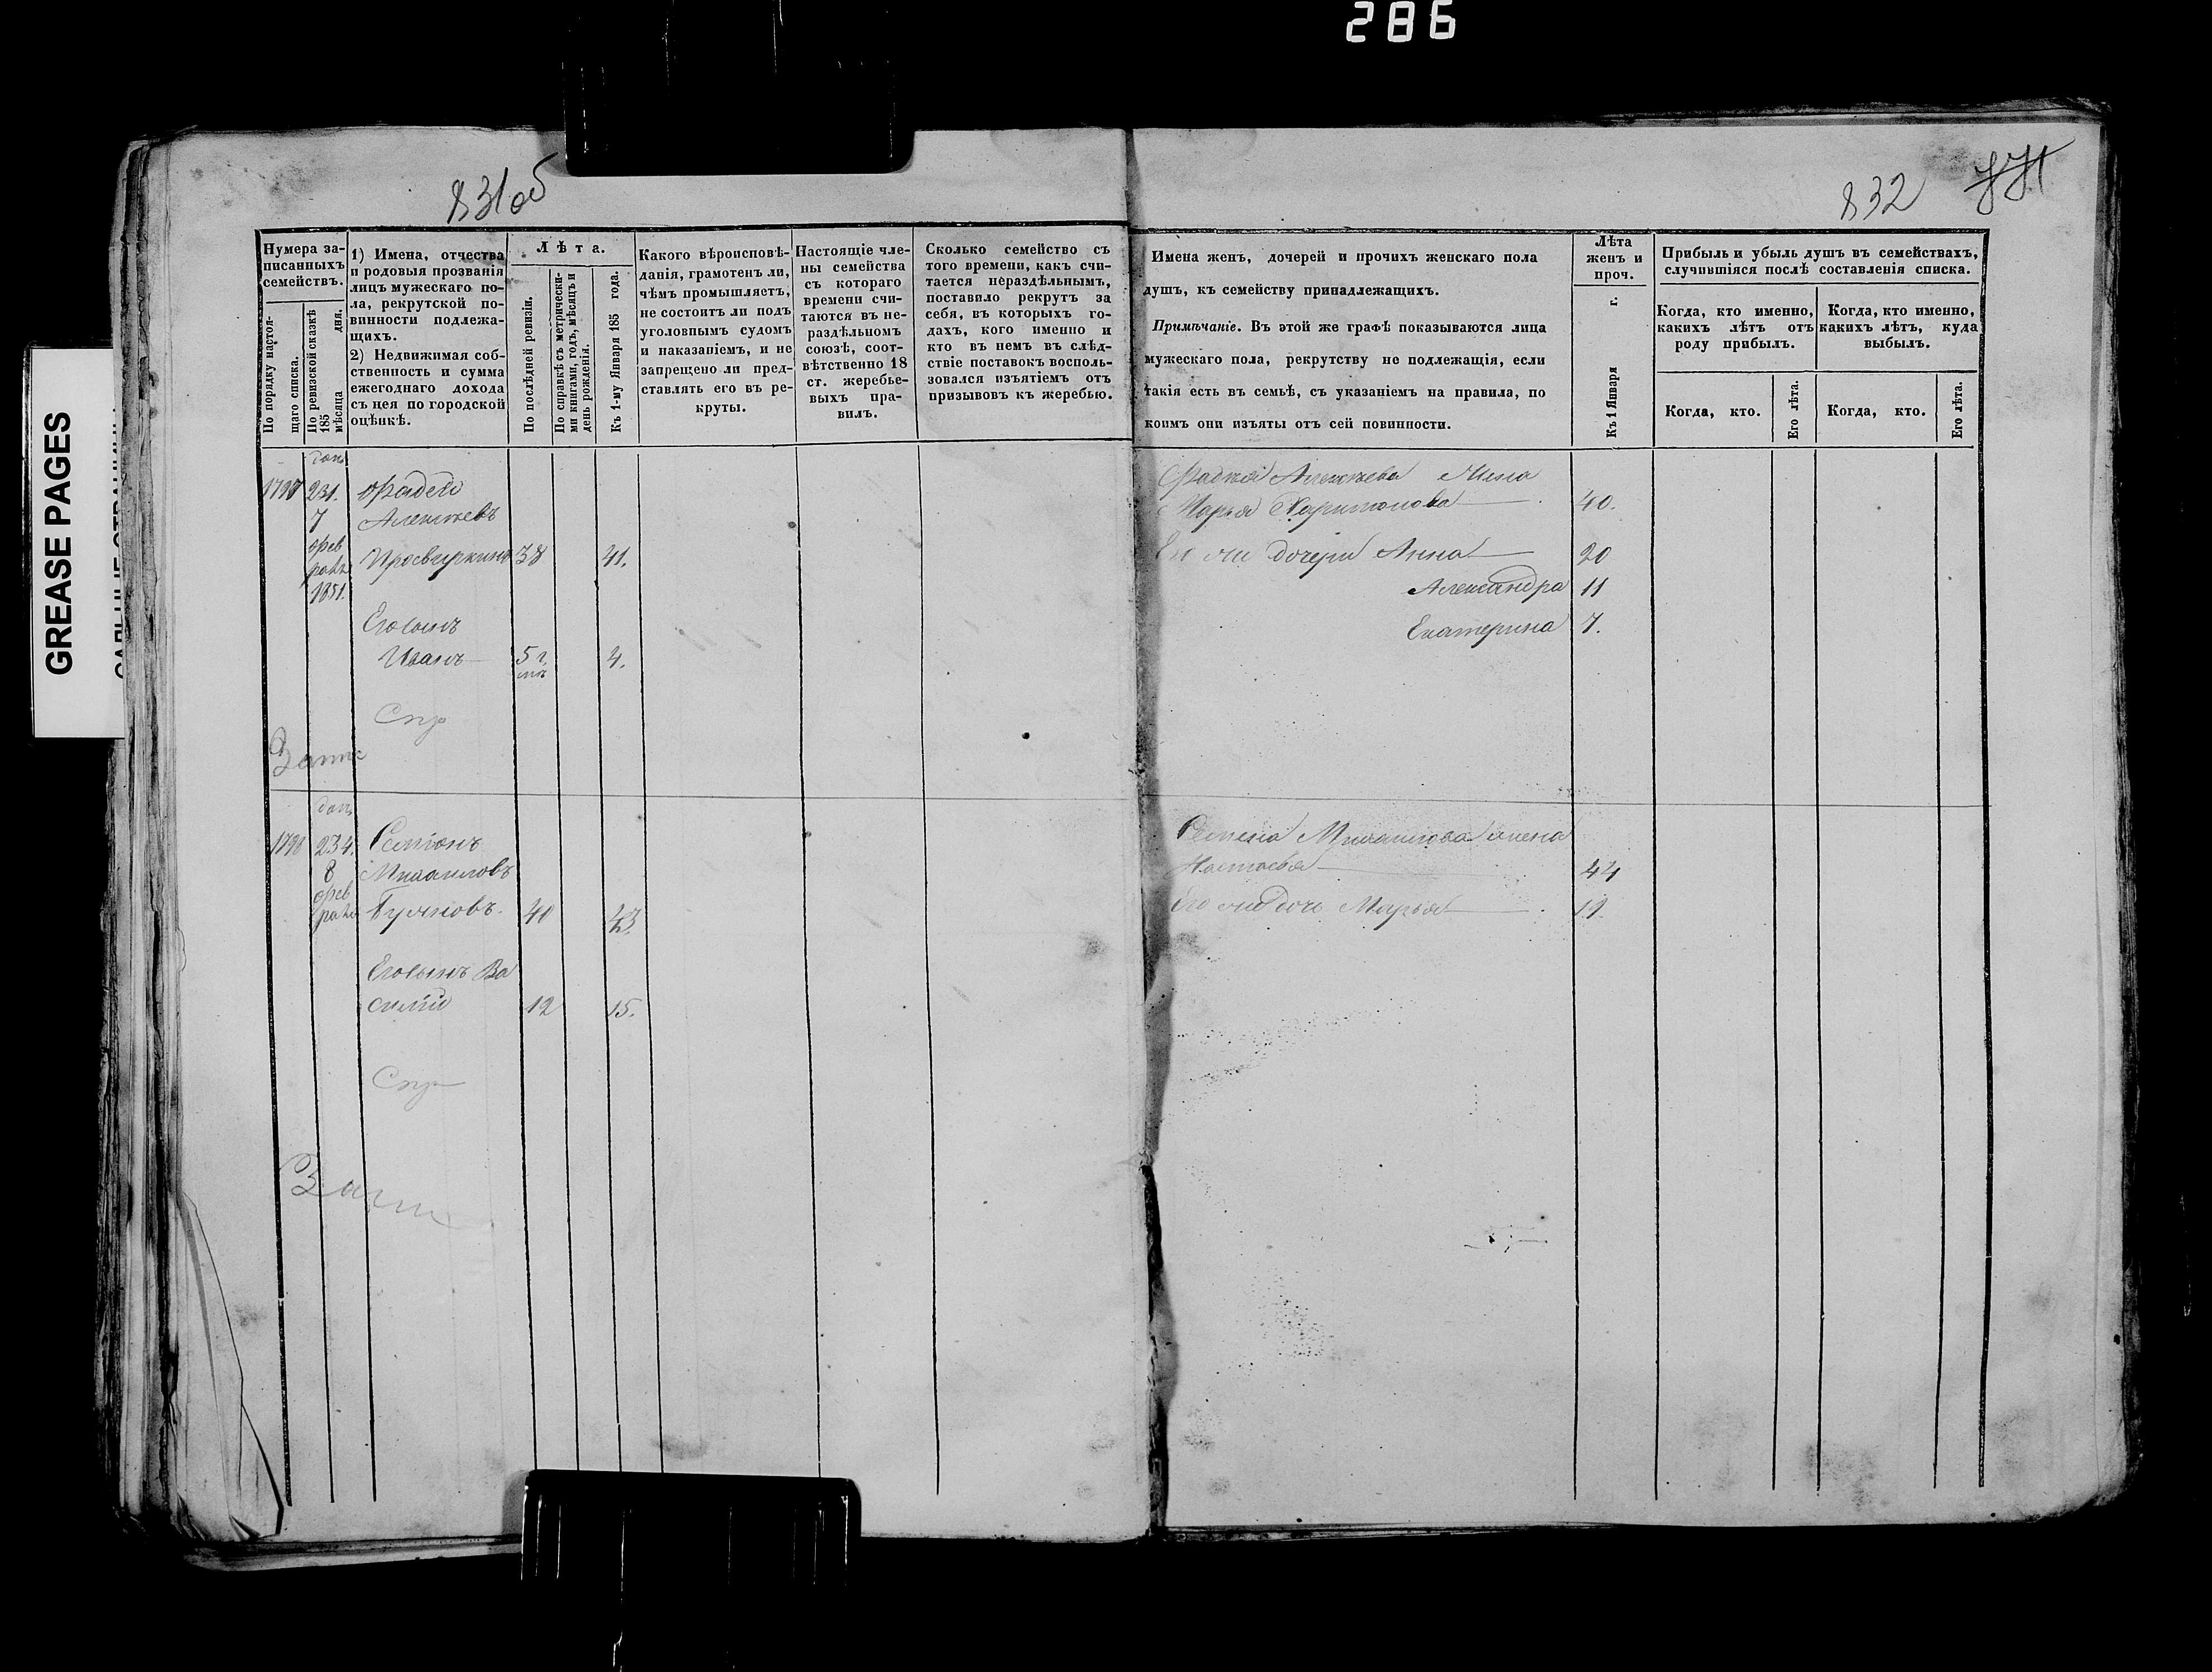 286
831об
832
GREASE PAGES
Нумера за-
писанныхъ
семействъ.
По порядку настоя-
щаго списка.
По ревизской сказкѣ
185
мѣсяца дня.
1) Имена, отчества
и родовыя прозванія
лицъ мужескаго по-
ла, рекрутской по-
винности подлежа-
щихъ.
2) Недвижимая соб-
ственность и сумма
ежегоднаго дохода
съ нея по городской
оцѣнкѣ.
Лѣта.
По послѣдней ревизіи.
По справкѣ съ метрически-
ми книгами, годъ, мѣсяцъ и
день рожденія.
Къ 1-му Января 185 года.
Какого вѣроисповѣ-
данія, грамотенъ ли,
чѣмъ промышляетъ,
не состоитъ ли подъ
уголовнымъ судомъ
и наказаніемъ, и не
запрещено ли пред-
ставлять его въ ре-
круты.
Настоящіе чле-
ны семейства
съ котораго
времени счи-
таются въ не-
раздѣльномъ
союзѣ, соот-
вѣтственно 18
ст. жеребье-
выхъ пра-
вилъ.
Сколько семейство съ
того времени, какъ счи-
тается нераздѣльнымъ,
поставило рекрутъ за
себя, въ которыхъ го-
дахъ, кого именно и
кто въ немъ въ слѣд-
ствіе поставокъ восполь-
зовался изъятіемъ отъ
призывовъ къ жеребью.
Имена женъ, дочерей и прочихъ женскаго пола
душъ, къ семейству принадлежащихъ.
Примѣчаніе. Въ этой же графѣ показываются лица
мужескаго пола, рекрутству не подлежащія, если
такія есть въ семьѣ, съ указаніемъ на правила, по
коимъ они изъяты отъ сей повинности.
Лѣта
женъ и
проч.
Къ 1 Января г.
Прибыль и убыль душъ въ семействахъ,
случившіяся послѣ составленія списка.
Когда, кто именно,
какихъ лѣтъ отъ
роду прибылъ.
Когда, кто именно,
какихъ лѣтъ, куда
выбылъ.
Когда, кто.
Его лѣта.
Когда, кто.
Его лѣта.
доп
1797 231. Фадей
7 Алексѣевъ
фев
раля Просвиркинъ 38 41.
1851.
Его сынъ
Иванъ 5 4.
Фадея Алексѣева жена
Марья Харитонова 40.
Его же дочери Анна 20
Александра 11
Екатерина 7.
доп
1798 234. Семіонъ
8 Михаиловъ
фев
раля 40 43.
Его сынъ Ва
силій 12 15.
Семена Михаилова жена
Настасья 44
Его же дочь Марья